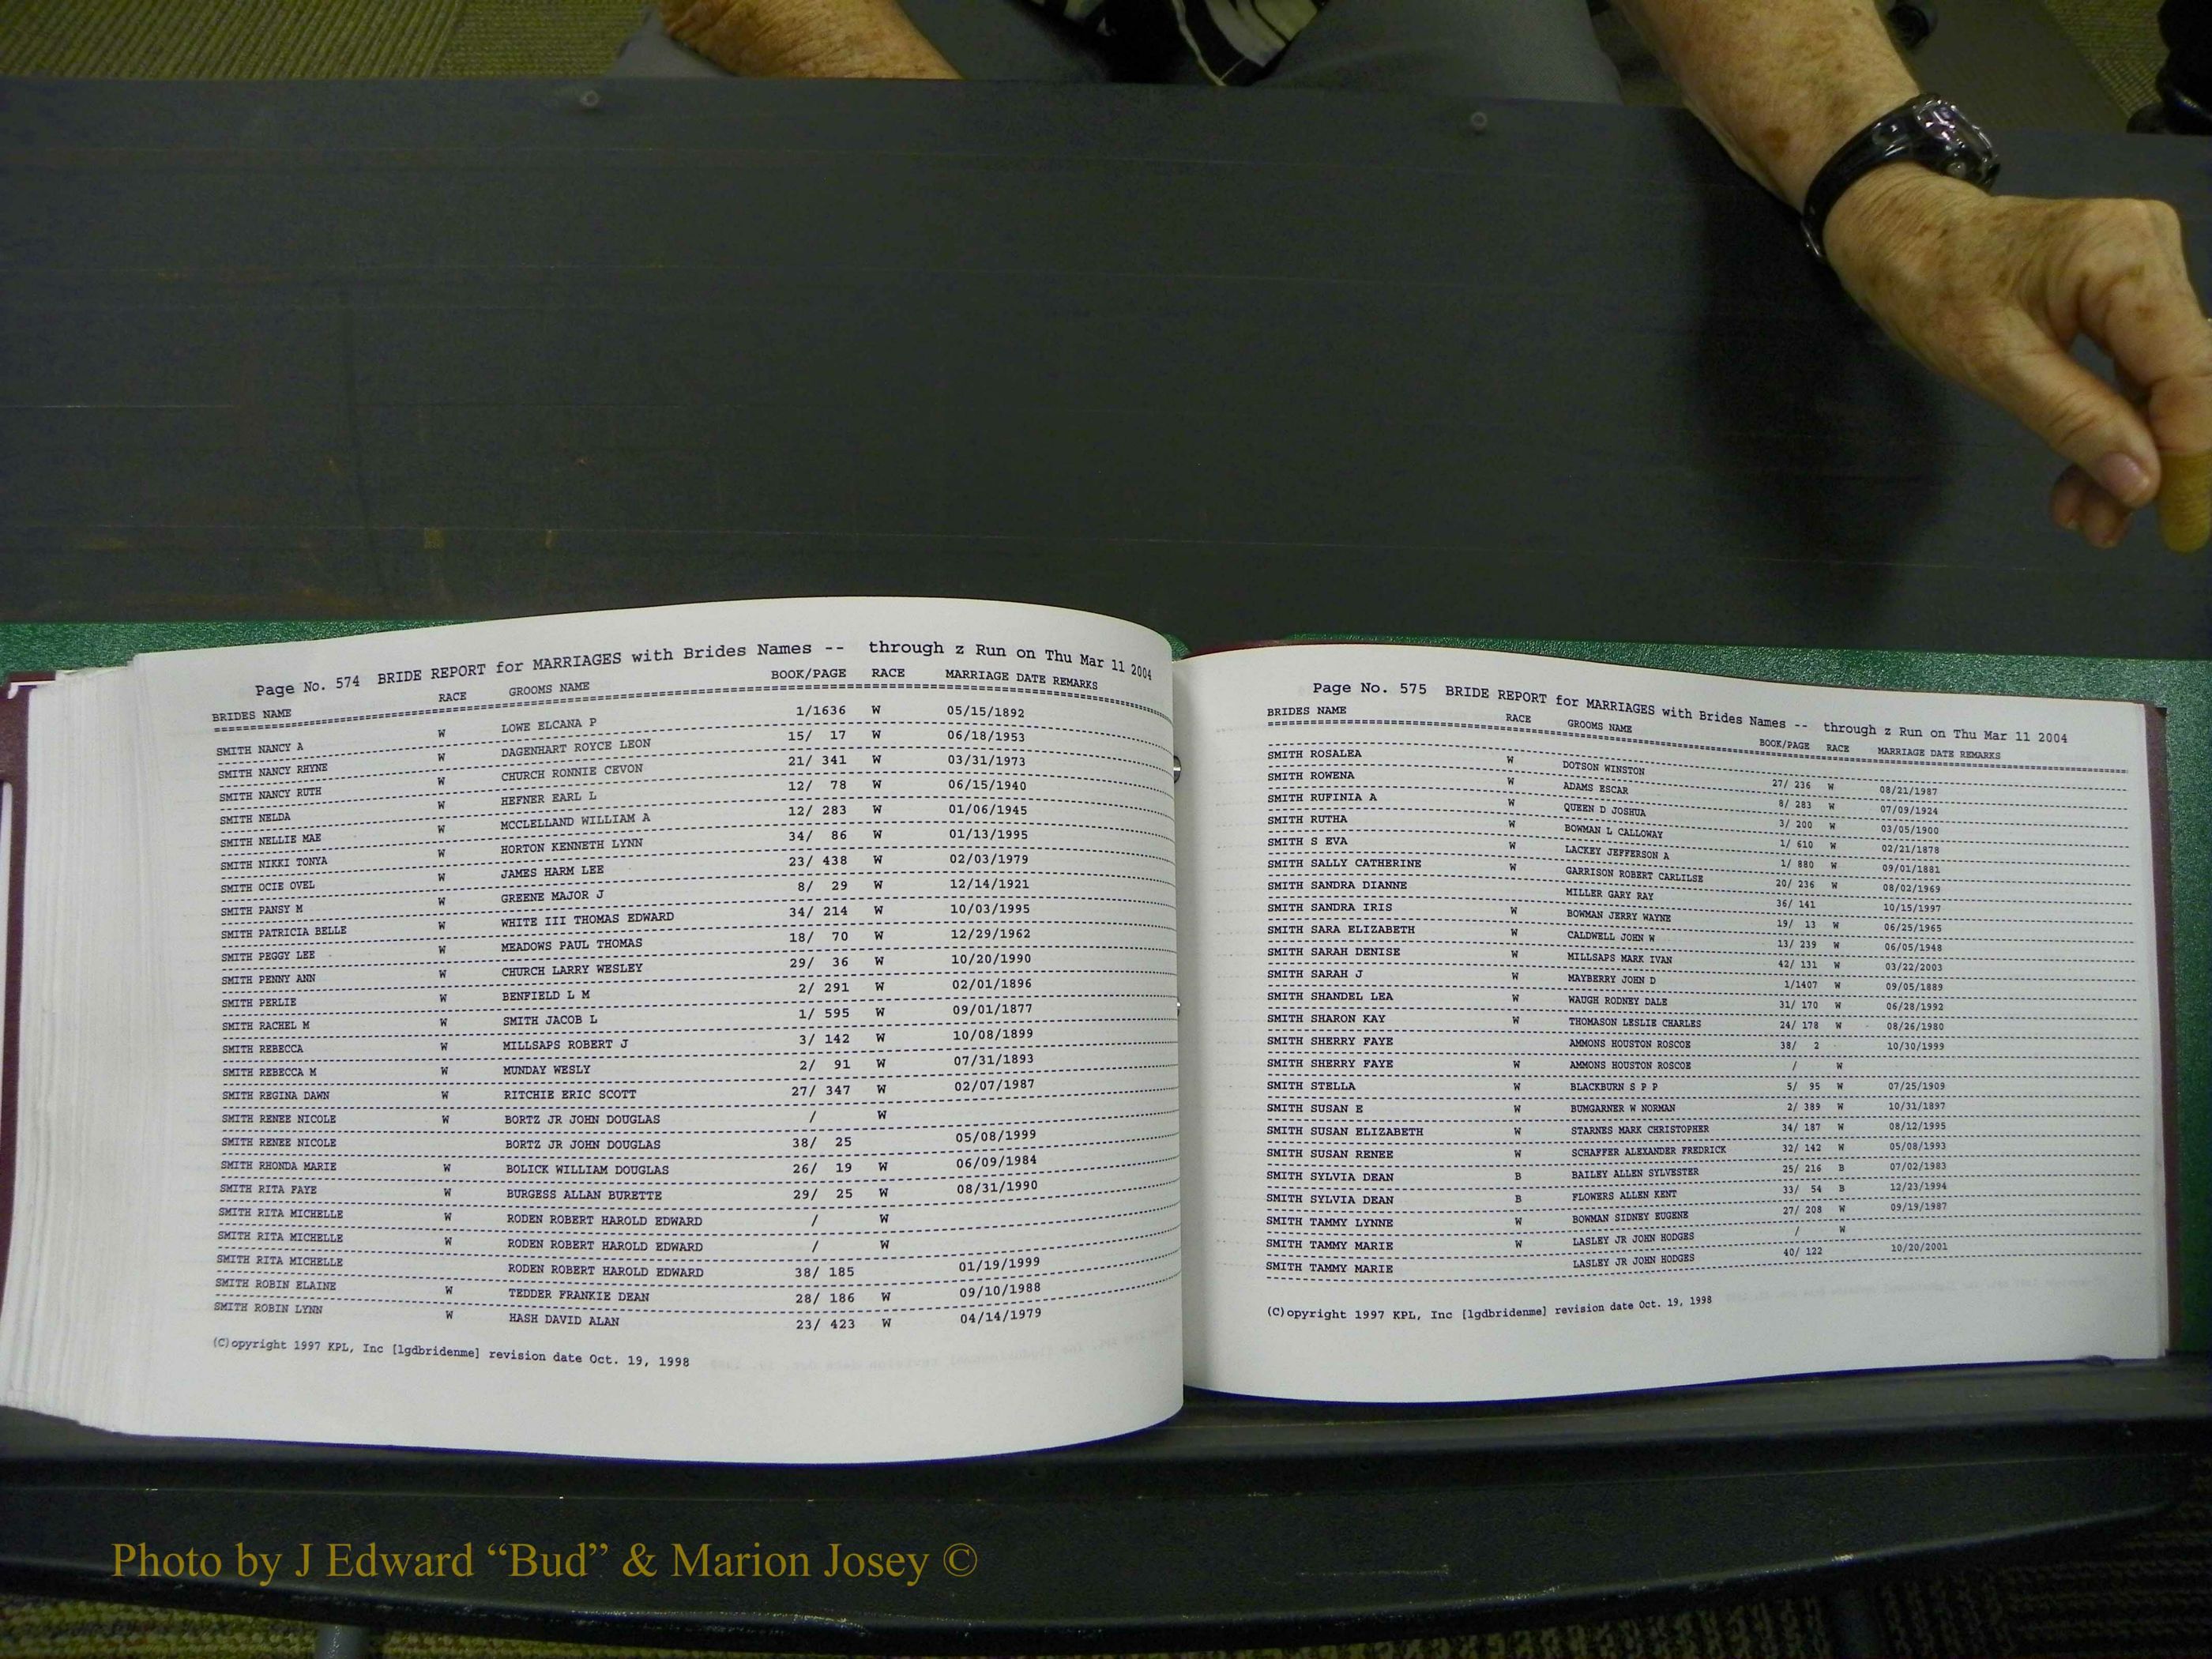 Page No. 574 BRIDE REPORT for MARRIAGES with Brides Names -- through z Run on Thu Mar 11 2004
BRIDES NAME RACE GROOMS NAME BOOK/PAGE RACE MARRIAGE DATE REMARKS
SMITH NANCY A W LOWE ELCANA P 1/1636 W 05/15/1892
SMITH NANCY RHYNE W DAGENHART ROYCE LEON 15/ 17 W 06/18/1953
SMITH NANCY RUTH W CHURCH RONNIE CEVON 21/ 341 W 03/31/1973
SMITH NELDA W HEFNER EARL L 12/ 78 W 06/15/1940
SMITH NELLIE MAE W MCCLELLAND WILLIAM A 12/ 283 W 01/06/1945
SMITH NIKKI TONYA W HORTON KENNETH LYNN 34/ 86 W 01/13/1995
SMITH OCIE OVEL W JAMES HARM LEE 23/ 438 W 02/03/1979
SMITH PANSY M W GREENE MAJOR J 8/ 29 W 12/14/1921
SMITH PATRICIA BELLE W WHITE III THOMAS EDWARD 34/ 214 W 10/03/1995
SMITH PEGGY LEE W MEADOWS PAUL THOMAS 18/ 70 W 12/29/1962
SMITH PENNY ANN W CHURCH LARRY WESLEY 29/ 36 W 10/20/1990
SMITH PERLIE W BENFIELD L M 2/ 291 W 02/01/1896
SMITH RACHEL M W SMITH JACOB L 1/ 595 W 09/01/1877
SMITH REBECCA W MILLSAPS ROBERT J 3/ 142 W 10/08/1899
SMITH REBECCA M W MUNDAY WESLY 2/ 91 W 07/31/1893
SMITH REGINA DAWN W RITCHIE ERIC SCOTT 27/ 347 W 02/07/1987
SMITH RENEE NICOLE W BORTZ JR JOHN DOUGLAS / W
SMITH RENEE NICOLE BORTZ JR JOHN DOUGLAS 38/ 25 05/08/1999
SMITH RHONDA MARIE W BOLICK WILLIAM DOUGLAS 26/ 19 W 06/09/1984
SMITH RITA FAYE W BURGESS ALLAN BURETTE 29/ 25 W 08/31/1990
SMITH RITA MICHELLE W RODEN ROBERT HAROLD EDWARD / W
SMITH RITA MICHELLE W RODEN ROBERT HAROLD EDWARD / W
SMITH RITA MICHELLE RODEN ROBERT HAROLD EDWARD 38/ 185 01/19/1999
SMITH ROBIN ELAINE W TEDDER FRANKIE DEAN 28/ 186 W 09/10/1988
SMITH ROBIN LYNN W HASH DAVID ALAN 23/ 423 W 04/14/1979
(C)opyright 1997 KPL, Inc [lgdbridenme] revision date Oct. 19, 1998
Page No. 575 BRIDE REPORT for MARRIAGES with Brides Names -- through z Run on Thu Mar 11 2004
BRIDES NAME RACE GROOMS NAME BOOK/PAGE RACE MARRIAGE DATE REMARKS
SMITH ROSALEA W DOTSON WINSTON 27/ 236 W 08/21/1987
SMITH ROWENA W ADAMS ESCAR 8/ 283 W 07/09/1924
SMITH RUFINIA A W QUEEN D JOSHUA 3/ 200 W 03/05/1900
SMITH RUTHA W BOWMAN L CALLOWAY 1/ 610 W 02/21/1878
SMITH S EVA W LACKEY JEFFERSON A 1/ 880 W 09/01/1881
SMITH SALLY CATHERINE W GARRISON ROBERT CARLILSE 20/ 236 W 08/02/1969
SMITH SANDRA DIANNE MILLER GARY RAY 36/ 141 10/15/1997
SMITH SANDRA IRIS W BOWMAN JERRY WAYNE 19/ 13 W 06/25/1965
SMITH SARA ELIZABETH W CALDWELL JOHN W 13/ 239 W 06/05/1948
SMITH SARAH DENISE W MILLSAPS MARK IVAN 42/ 131 W 03/22/2003
SMITH SARAH J W MAYBERRY JOHN D 1/1407 W 09/05/1889
SMITH SHANDEL LEA W WAUGH RODNEY DALE 31/ 170 W 06/28/1992
SMITH SHARON KAY W THOMASON LESLIE CHARLES 24/ 178 W 08/26/1980
SMITH SHERRY FAYE AMMONS HOUSTON ROSCOE 38/ 2 10/30/1999
SMITH SHERRY FAYE W AMMONS HOUSTON ROSCOE / W
SMITH STELLA W BLACKBURN S P P 5/ 95 W 07/25/1909
SMITH SUSAN E W BUMGARNER W NORMAN 2/ 389 W 10/31/1897
SMITH SUSAN ELIZABETH W STARNES MARK CHRISTOPHER 34/ 187 W 08/12/1995
SMITH SUSAN RENEE W SCHAFFER ALEXANDER FREDRICK 32/ 142 W 05/08/1993
SMITH SYLVIA DEAN B BAILEY ALLEN SYLVESTER 25/ 216 B 07/02/1983
SMITH SYLVIA DEAN B FLOWERS ALLEN KENT 33/ 54 B 12/23/1994
SMITH TAMMY LYNNE W BOWMAN SIDNEY EUGENE 27/ 208 W 09/19/1987
SMITH TAMMY MARIE W LASLEY JR JOHN HODGES / W
SMITH TAMMY MARIE LASLEY JR JOHN HODGES 40/ 122 10/20/2001
(C)opyright 1997 KPL, Inc [lgdbridenme] revision date Oct. 19, 1998
Photo by J Edward “Bud” & Marion Josey ©